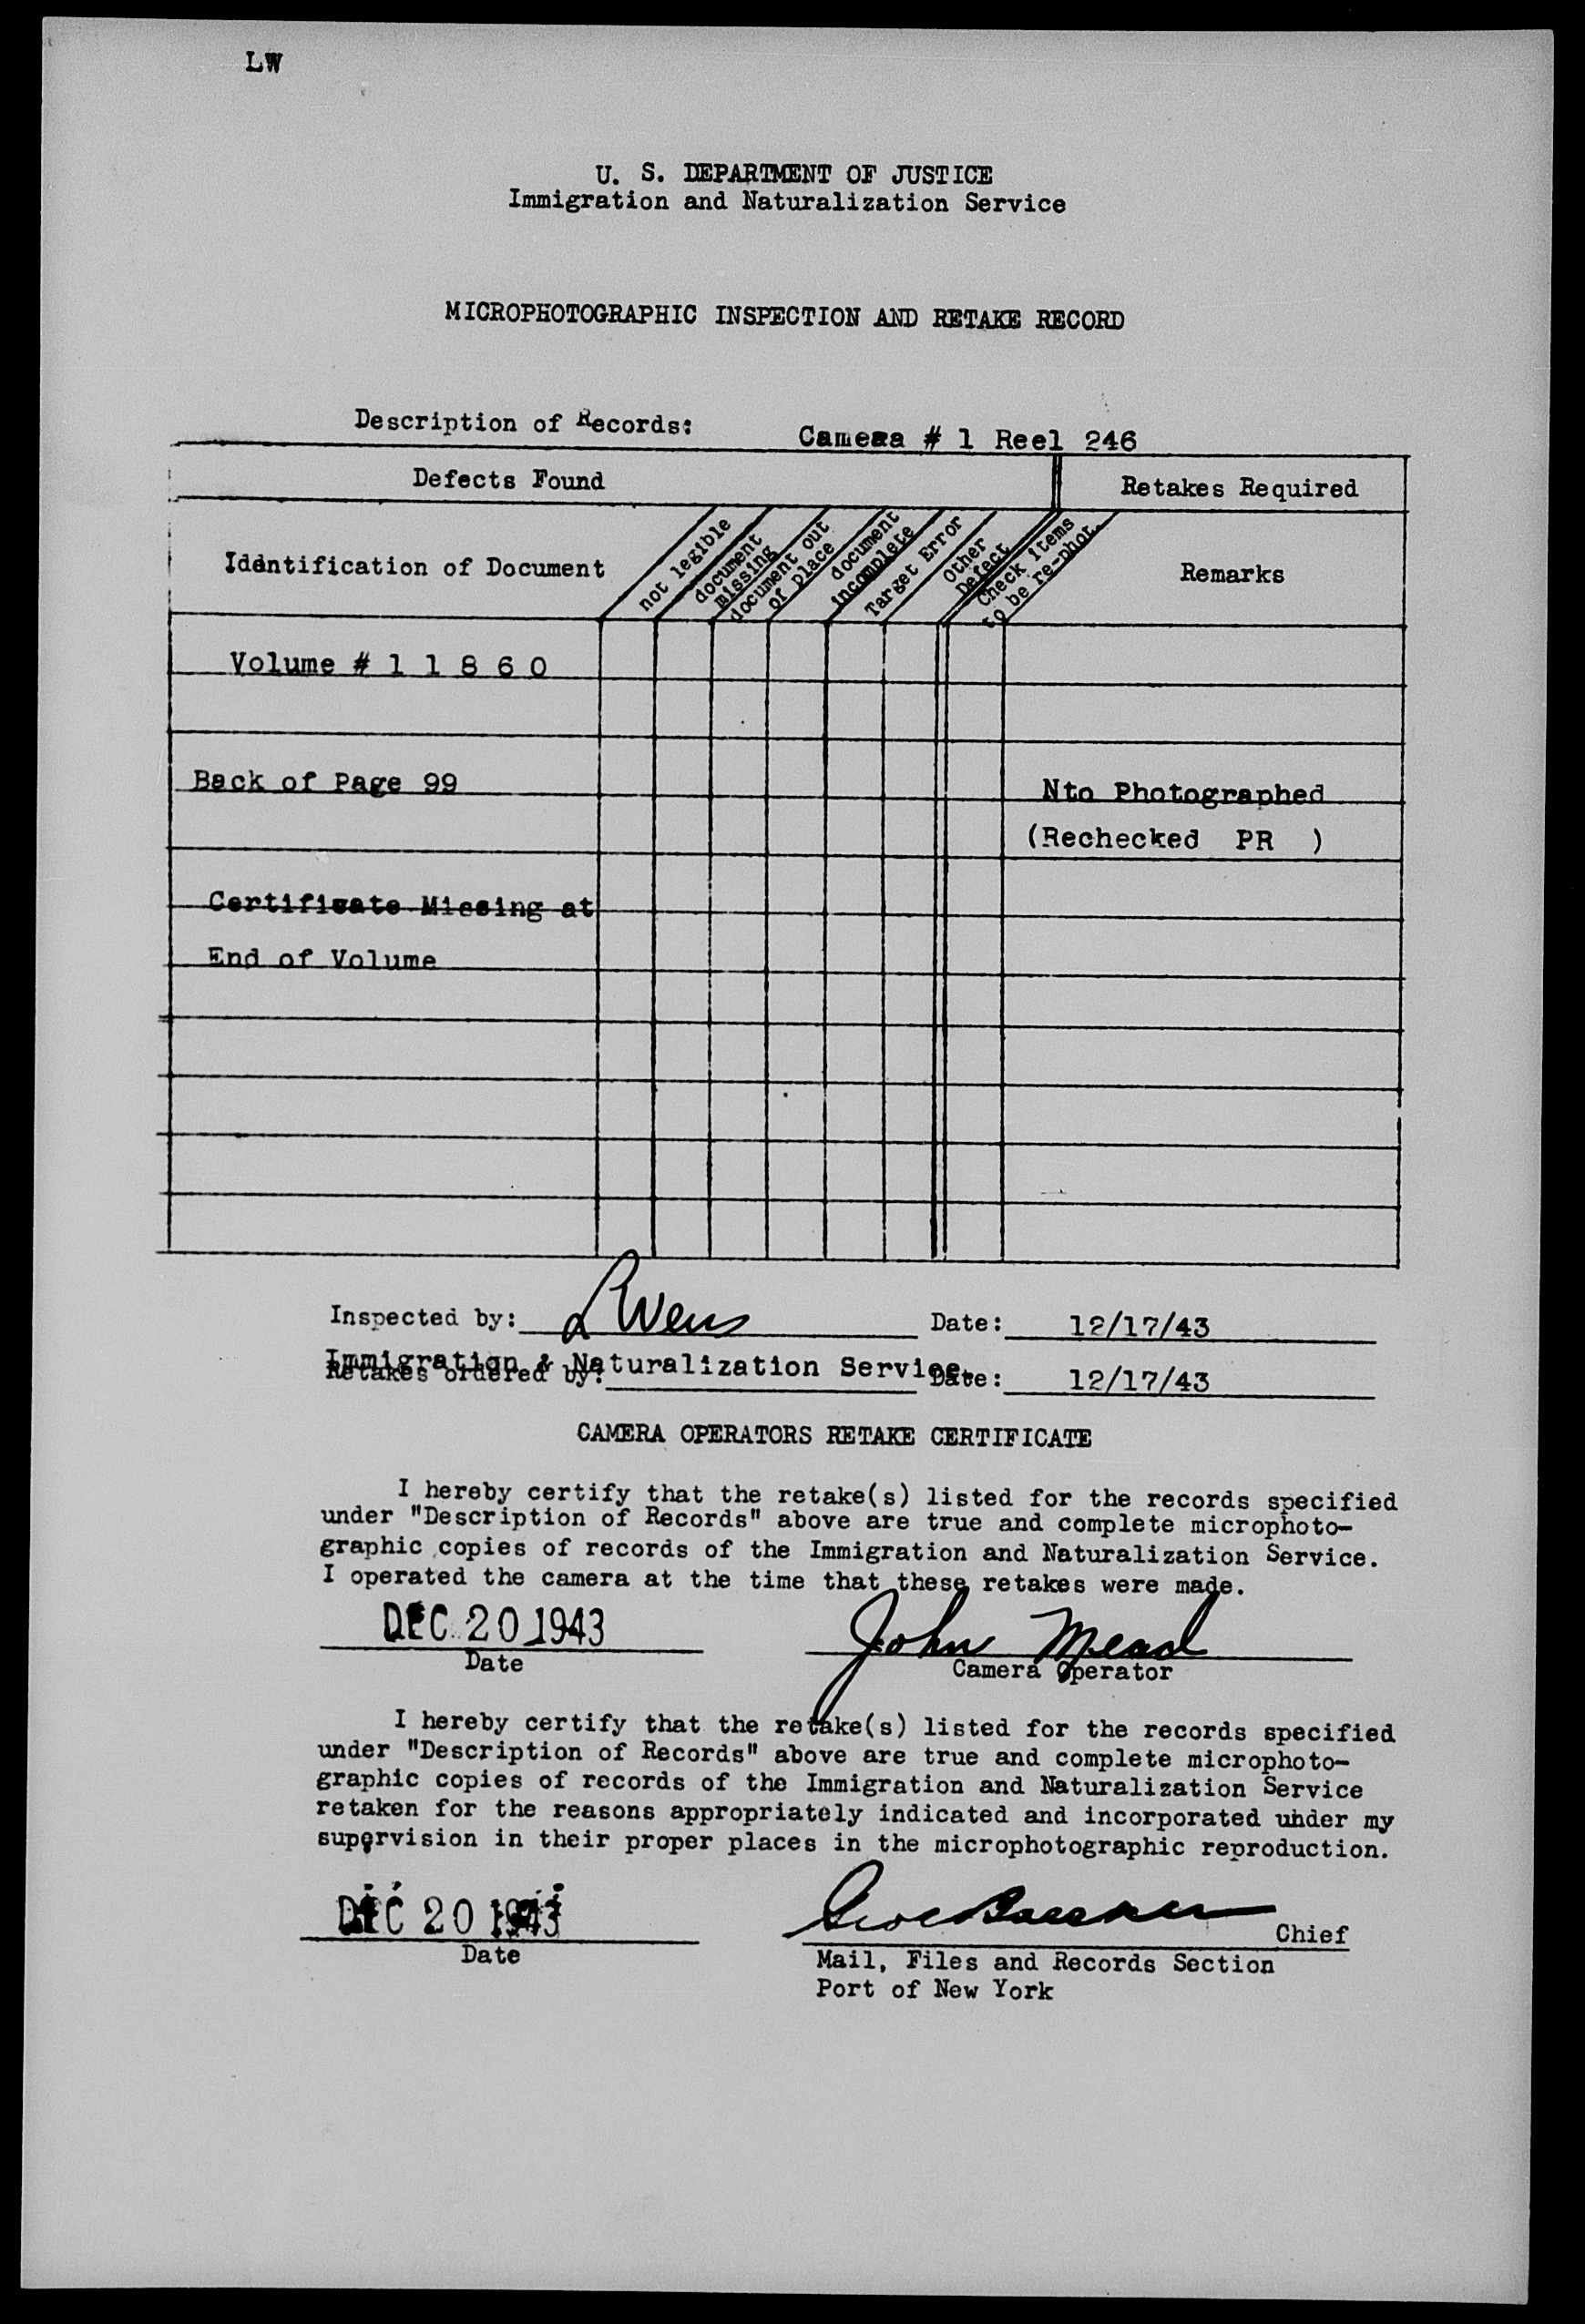 LW
U. S. DEPARTMENT OF JUSTICE
Immigration and Naturalization Service
MICROPHOTOGRAPHIC INSPECTION AND RETAKE RECORD
Description of Records:
Camera # 1 Reel 246
Defects Found
Retakes Required
Identification of Document
not legible
document missing
document out of place
document incomplete
Target Error
Other Defect
Check items to be re-phot.
Remarks
Volume # 1 1 8 6 0
Back of Page 99
Nto Photographed
(Rechecked PR )
Certificate Missing at
End of Volume
Inspected by: L Wens Date: 12/17/43
Immigration & Naturalization Service.
Retakes ordered by: Date: 12/17/43
CAMERA OPERATORS RETAKE CERTIFICATE
I hereby certify that the retake(s) listed for the records specified
under "Description of Records" above are true and complete microphoto-
graphic copies of records of the Immigration and Naturalization Service.
I operated the camera at the time that these retakes were made.
DEC 20 1943 John Mead
Date Camera Operator
I hereby certify that the retake(s) listed for the records specified
under "Description of Records" above are true and complete microphoto-
graphic copies of records of the Immigration and Naturalization Service
retaken for the reasons appropriately indicated and incorporated under my
supervision in their proper places in the microphotographic reproduction.
DEC 20 1943
Chief
Date
Mail, Files and Records Section
Port of New York